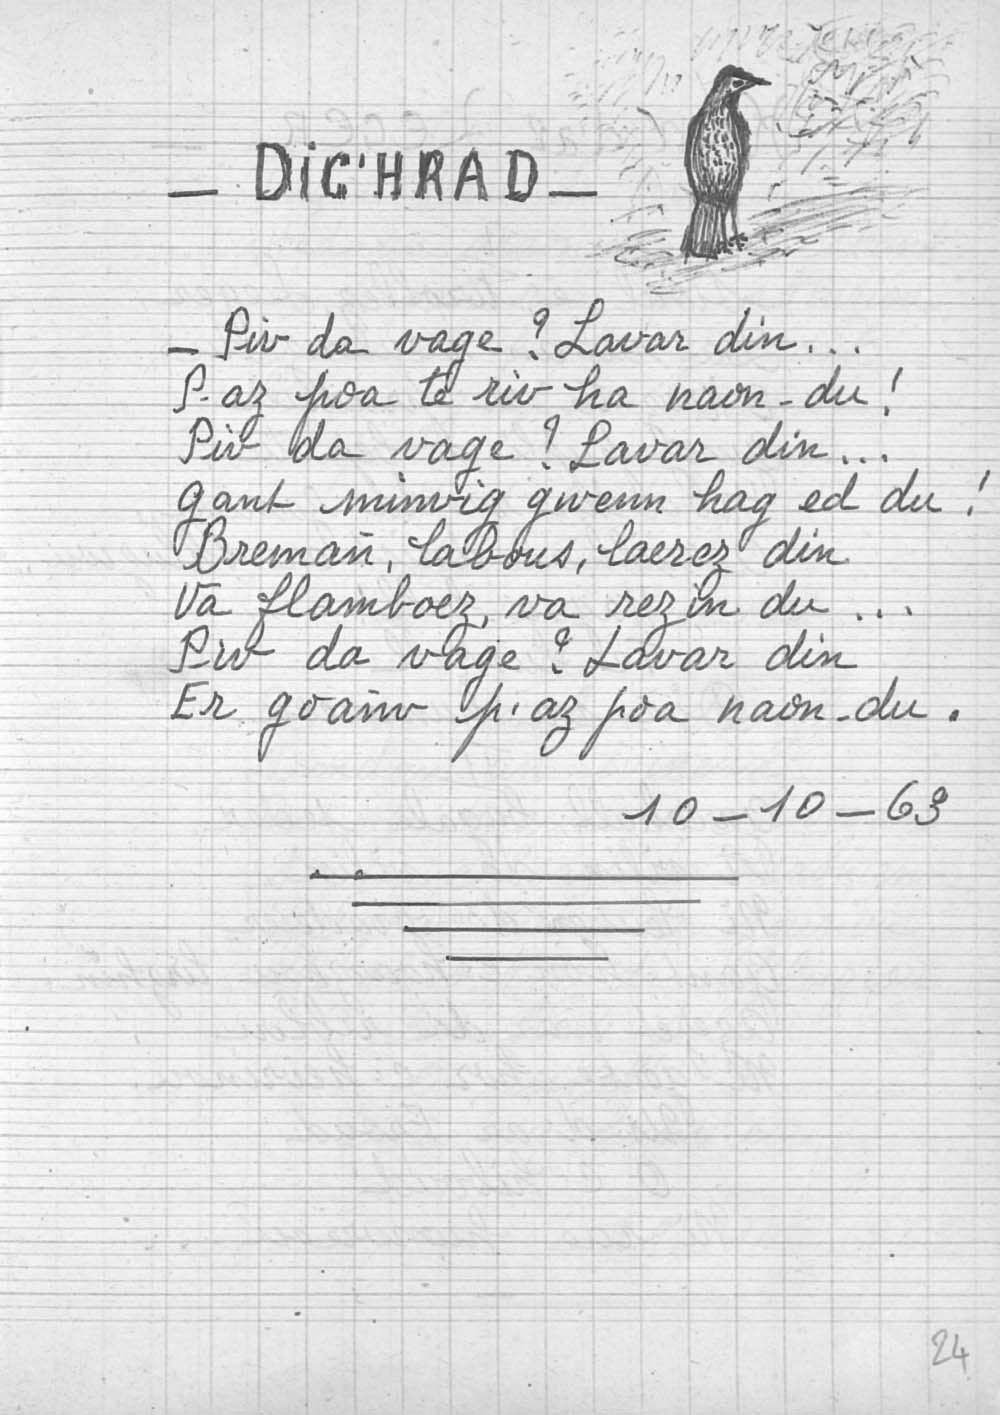 — DiC'HRAD —
– Piv da vage ? Lavar din...
P-az poa te riv ha naon-du !
Piv da vage ? Lavar din...
Gant minvig gwenn hag ed du !
Bremañ, labous, laerez din
Va flamboez, va rezin du ...
Piv da vage ? Lavar din
Er goañv p'az poa naon-du.
10–10–63
24